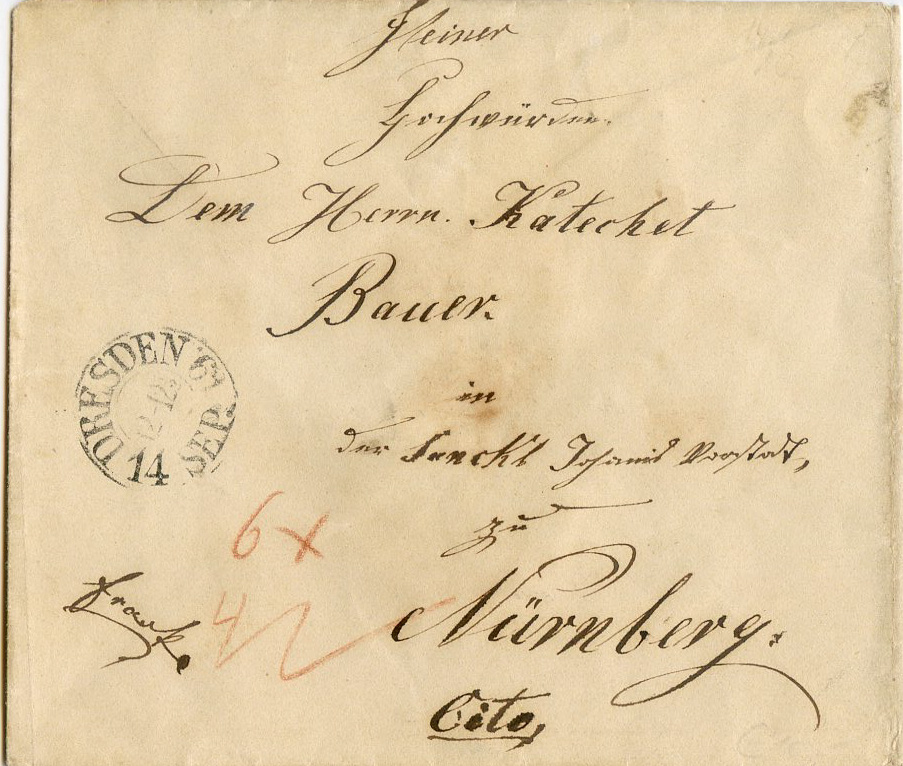 Seiner
Hochwürden.
Dem Herrn. Katechet
Bauer.
in
der Sanckt Johanis Vorstadt,
zu
Nürnberg.
Cito,
DRESDEN 61
12-12½
14 SEP.
6 x
4
Frank.